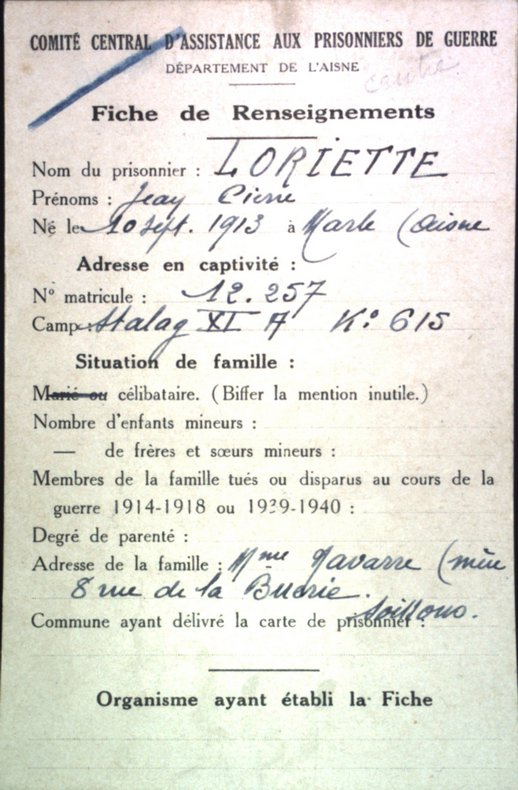 COMITÉ CENTRAL D'ASSISTANCE AUX PRISONNIERS DE GUERRE
DÉPARTEMENT DE L'AISNE
Fiche de Renseignements
Nom du prisonnier : LORIETTE
Prénoms : Jean Pierre
Né le 10 Sept. 1913 à Marle (Aisne
Adresse en captivité :
N° matricule : 12.257
Camp : Stalag XI A K° 615
Situation de famille :
Marié ou célibataire. (Biffer la mention inutile.)
Nombre d'enfants mineurs :
— de frères et sœurs mineurs :
Membres de la famille tués ou disparus au cours de la
guerre 1914-1918 ou 1939-1940 :
Degré de parenté :
Adresse de la famille : Mme Navarre (mère
8 rue de la Buerie.
Soissons.
Commune ayant délivré la carte de prisonnier :
Organisme ayant établi la Fiche